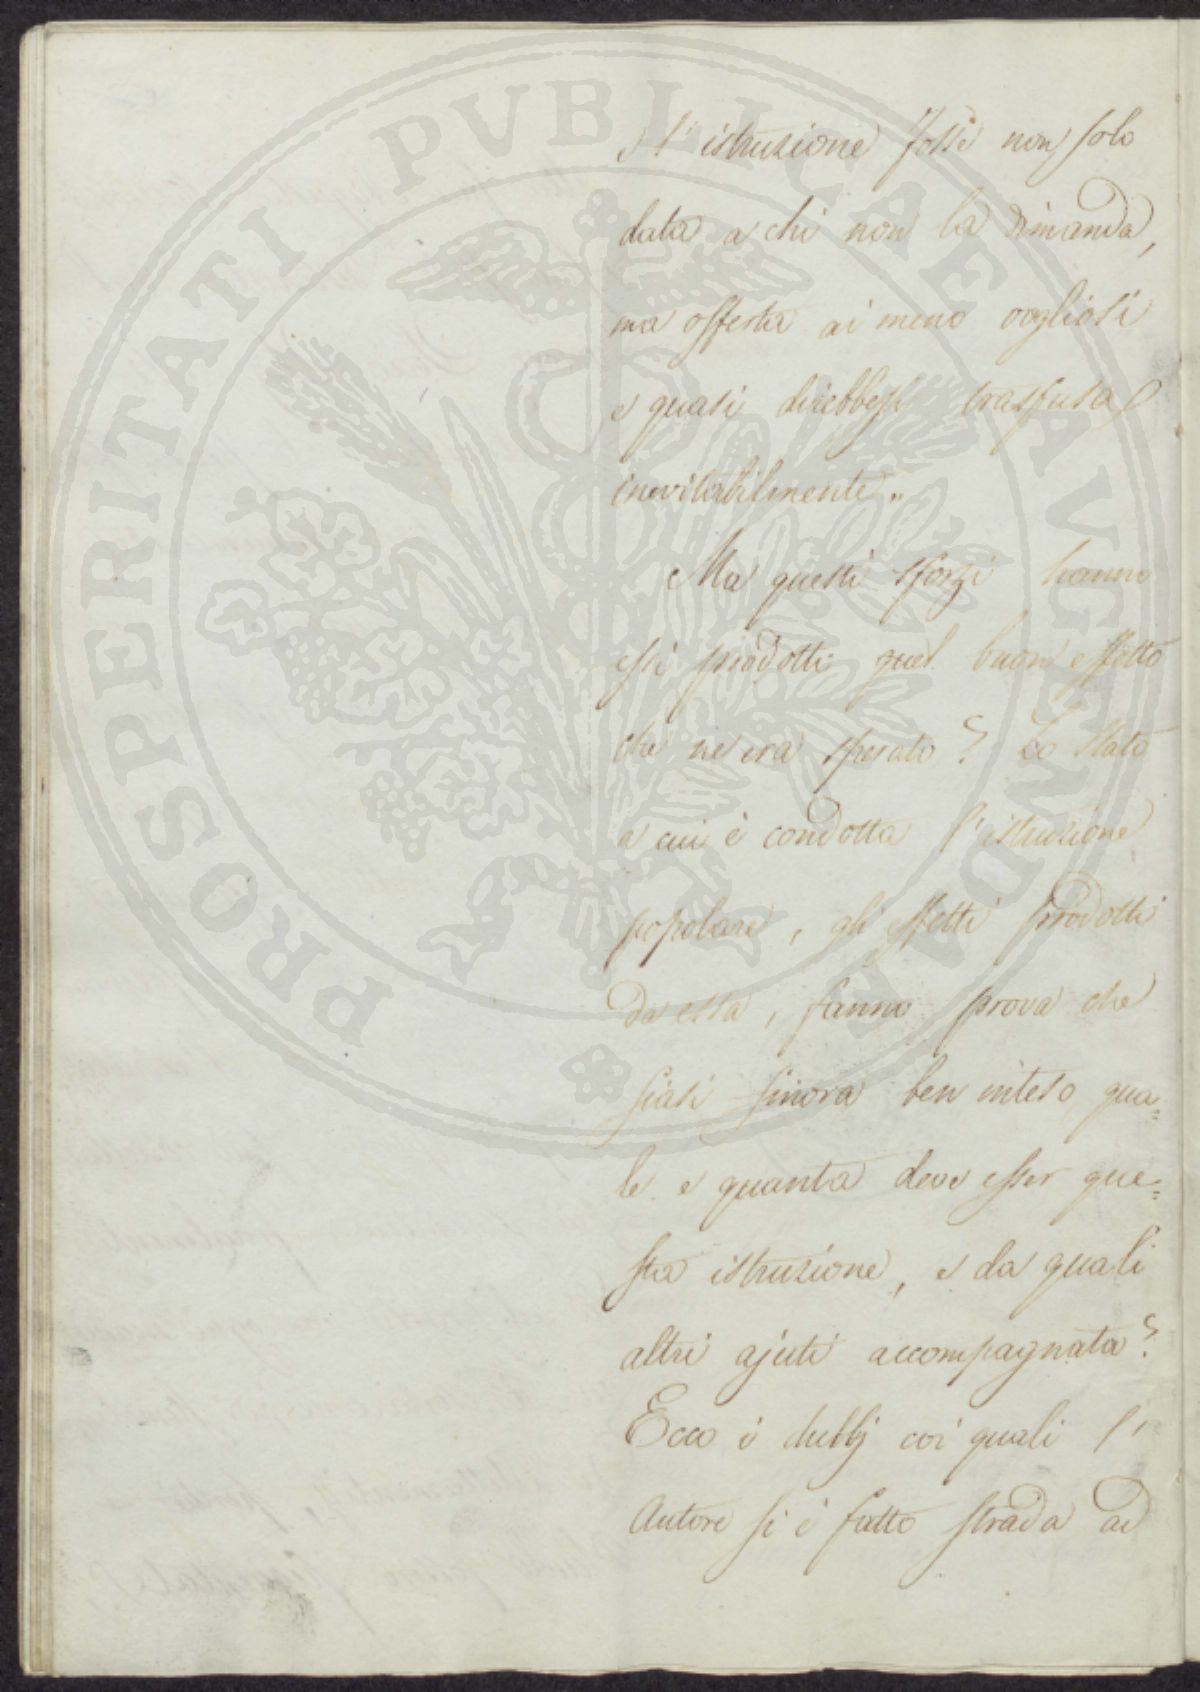 e l'istruzione fosse non solo
data a chi non la dimanda,
ma offerta ai meno vogliosi
e quasi direbbesi trasfusa
inevitabilmente„
Ma questi sforzi hanno
essi prodotti quel buon effetto
che ne era sperato? Lo stato
a cui è condotta l'istruzione
popolare, gli effetti prodotti
da essa, fanno prova che
siasi finora ben inteso qua=
le e quanta deve esser que=
sta istruzione, e da quali
altri ajuti accompagnata?
Ecco i dubbj coi quali l'
Autore si è fatto strada ad
PROSPERITATI PVBLICAE AVGENDAE